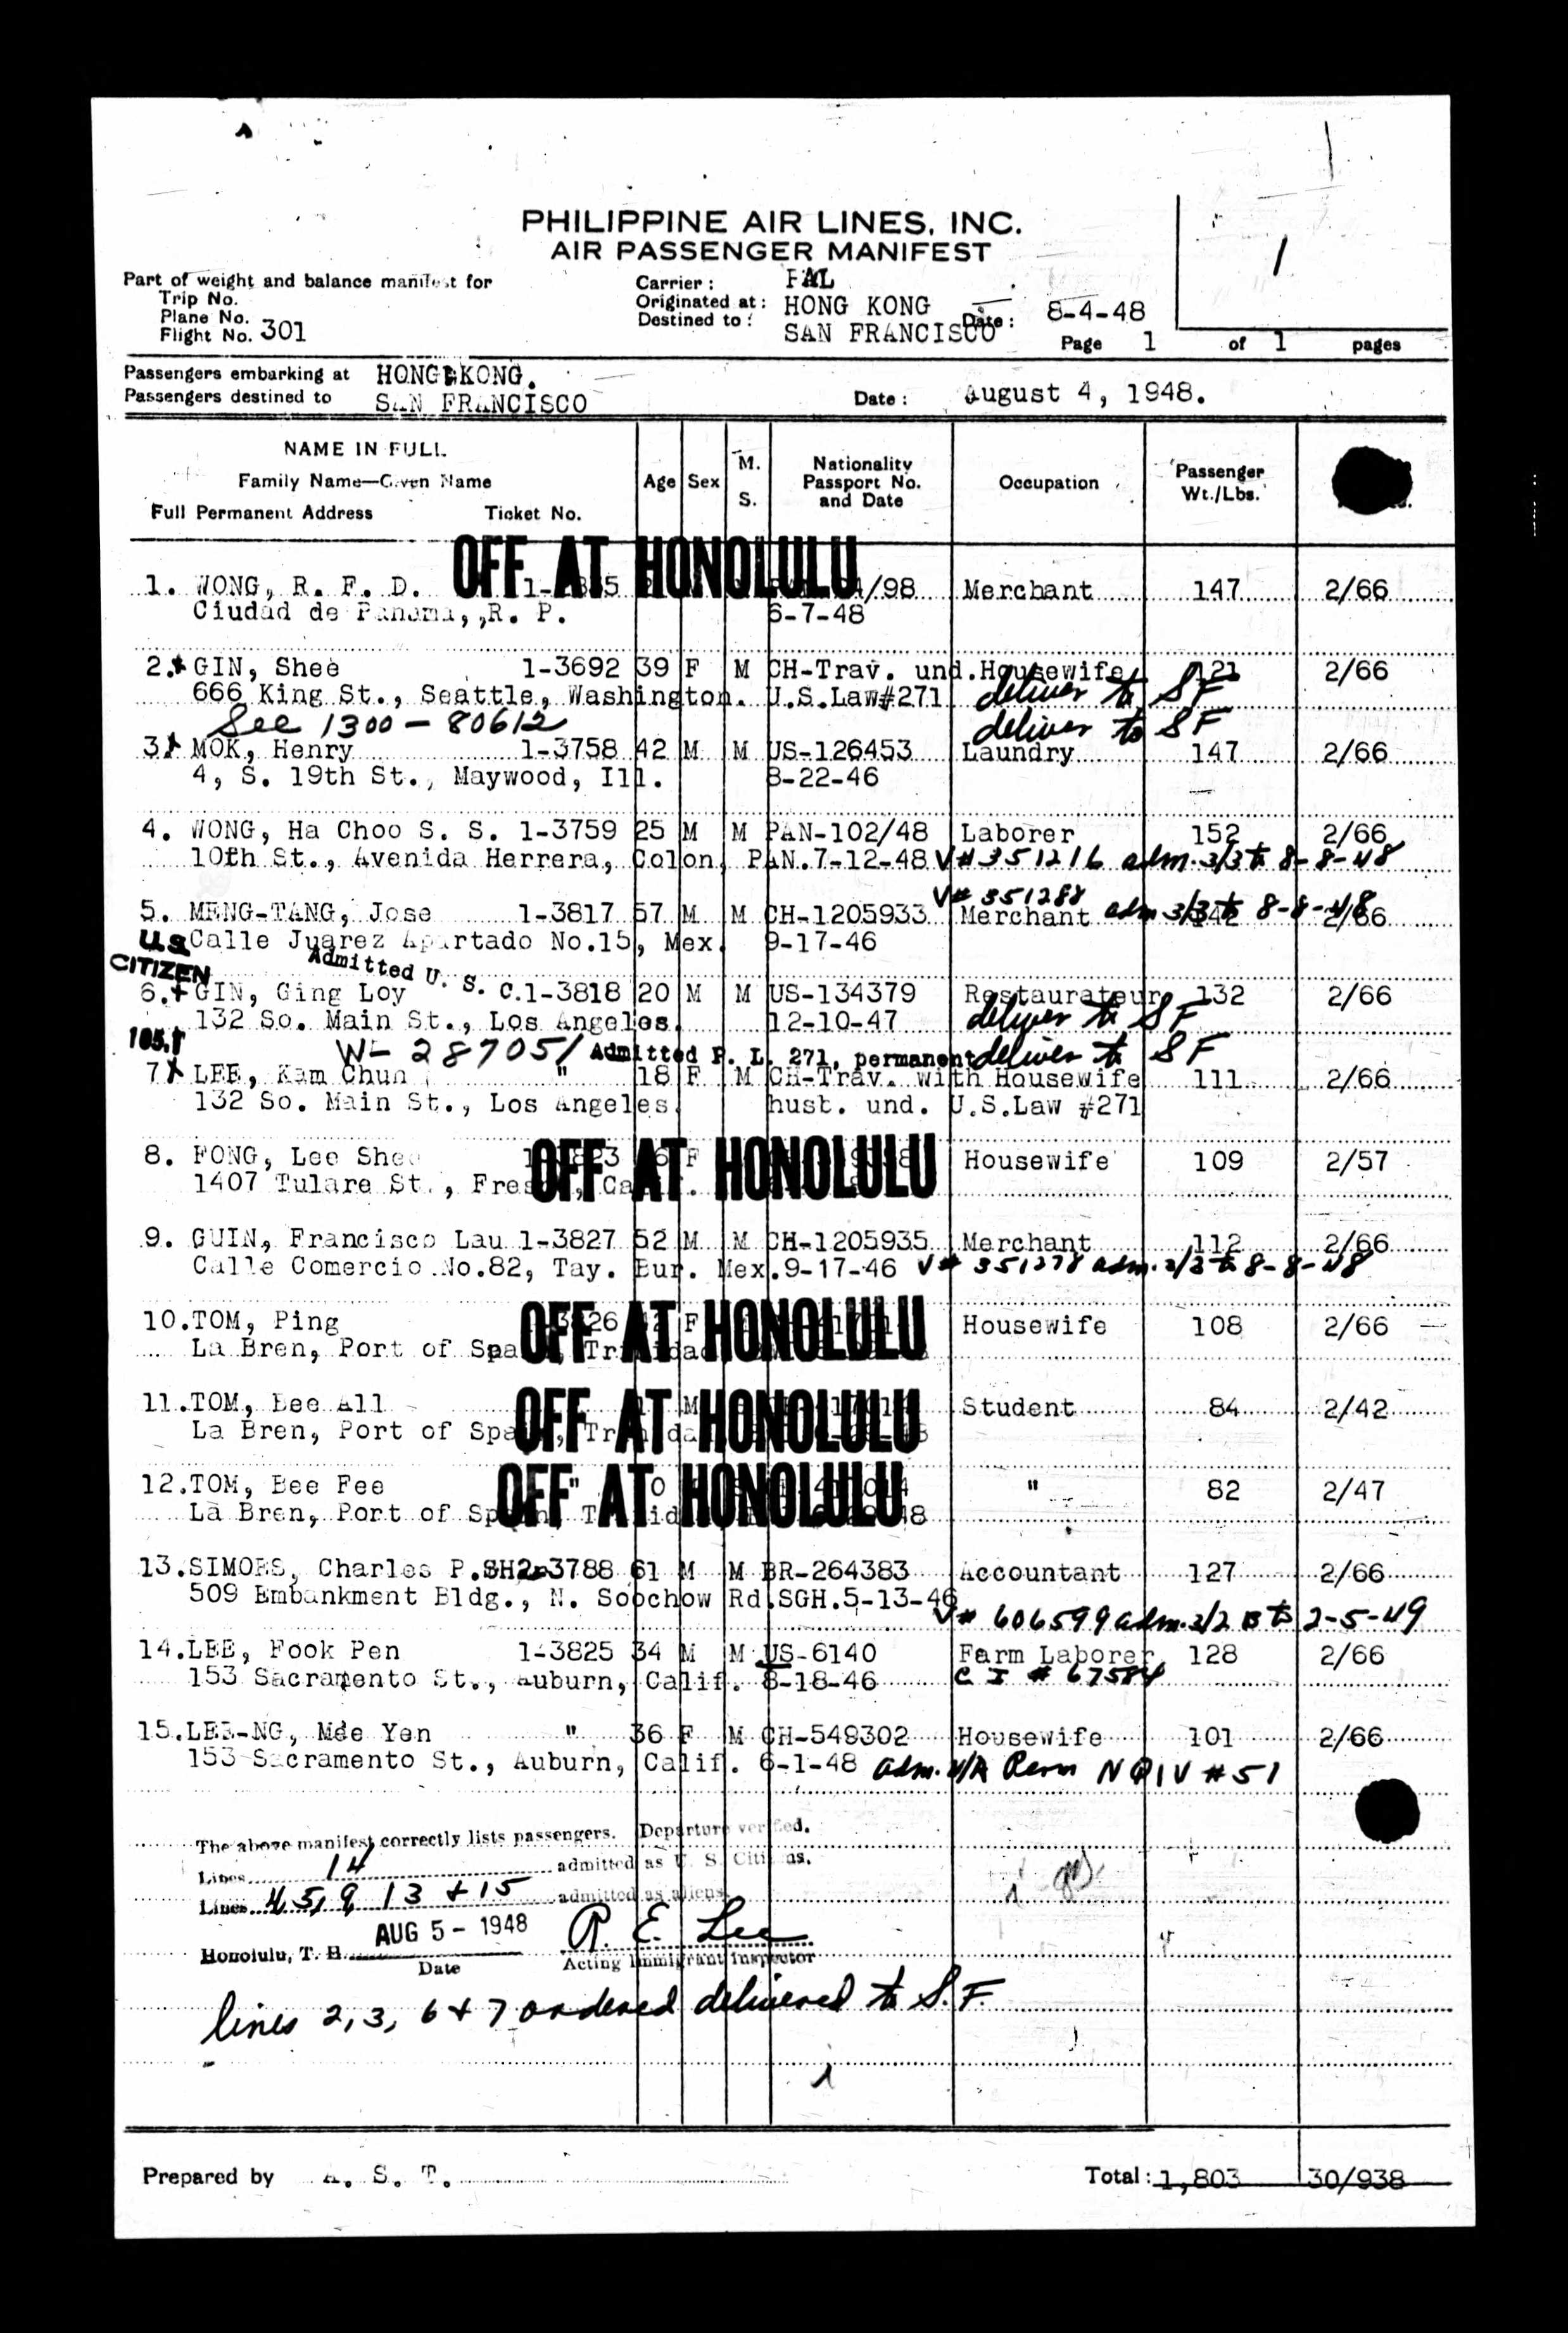 1
PHILIPPINE AIR LINES, INC.
AIR PASSENGER MANIFEST
Part of weight and balance manifest for
Trip No.
Plane No.
Flight No. 301
Carrier: PAL
Originated at: HONG KONG
Destined to: SAN FRANCISCO
Date: 8-4-48
Page 1 of 1 pages
Passengers embarking at HONG KONG.
Passengers destined to SAN FRANCISCO
Date: August 4, 1948.
NAME IN FULL
Family Name—Given Name
Full Permanent Address Ticket No.
Age Sex M. S.
Nationality Passport No. and Date
Occupation
Passenger Wt./Lbs.
OFF AT HONOLULU
1. WONG, R. F. D. /98 Merchant 147 2/66
Ciudad de Panama, R. P. 6-7-48
2. GIN, Shee 1-3692 39 F M CH-Trav. und. Housewife 121 2/66
666 King St., Seattle, Washington. U.S.Law#271 deliver to SF
See 1300-80612 deliver to SF
3. MOK, Henry 1-3758 42 M M US-126453 Laundry 147 2/66
4, S. 19th St., Maywood, Ill. 8-22-46
4. WONG, Ha Choo S. S. 1-3759 25 M M PAN-102/48 Laborer 152 2/66
10th St., Avenida Herrera, Colon, PAN. 7-12-48 V# 351216 adm. 3/3 to 8-8-48
V# 351288 adm 3/3 to 8-8-48
5. MENG-TANG, Jose 1-3817 57 M M CH-1205933 Merchant 2/66
Calle Juarez Apartado No.15, Mex. 9-17-46
US CITIZEN
Admitted U. S. C.
6. GIN, Ging Loy 1-3818 20 M M US-134379 Restaurateur 132 2/66
132 So. Main St., Los Angeles. 12-10-47 deliver to SF
W-287051 Admitted P. L. 271, permanent deliver to SF
7 LEE, Kam Chun " 18 F M CH-Trav. with Housewife 111 2/66
132 So. Main St., Los Angeles. husb. und. U.S.Law #271
OFF AT HONOLULU
8. FONG, Lee Shee F Housewife 109 2/57
1407 Tulare St.,
9. GUIN, Francisco Lau 1-3827 52 M M CH-1205935 Merchant 112 2/66
Calle Comercio No.82, Tay. Bur. Mex. 9-17-46 V# 351278 adm. 3/3 to 8-8-48
OFF AT HONOLULU
10. TOM, Ping F Housewife 108 2/66
La Bren, Port of Spain, Trinidad
OFF AT HONOLULU
11. TOM, Bee All M Student 84 2/42
La Bren, Port of Spain, Trinidad
OFF AT HONOLULU
12. TOM, Bee Fee " " 82 2/47
La Bren, Port of Spain, Trinidad
13. SIMOES, Charles P. SH2-3788 61 M M BR-264383 Accountant 127 2/66
509 Embankment Bldg., N. Soochow Rd. SGH. 5-13-46
V# 606599 adm. 3/2 B to 2-5-49
14. LEE, Fook Pen 1-3825 34 M M US-6140 Farm Laborer 128 2/66
153 Sacramento St., Auburn, Calif. 8-18-46 C I # 67584
15. LEE-NG, Mee Yen " 36 F M CH-549302 Housewife 101 2/66
153 Sacramento St., Auburn, Calif. 6-1-48 adm. Perm NQIV #51
The above manifest correctly lists passengers. Departure verified.
Lines 14 admitted as U. S. Citizens.
Lines 4, 5, 9, 13 + 15 admitted as aliens.
Honolulu, T. H. AUG 5 - 1948 R. E. Lee
Date Acting Immigrant Inspector
lines 2, 3, 6 + 7 ordered delivered to S.F.
Prepared by A. S. T. Total: 1,803 30/938